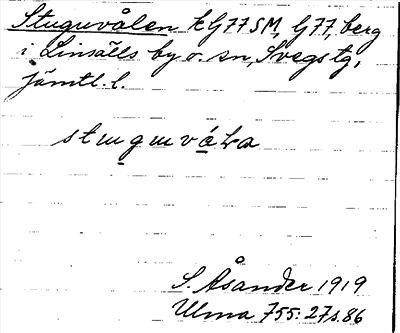 Stuguvålen kG77SM, G77, berg
i Linsälls by o. sn, Svegs tg,
Jämtl. l.
stuguvåLa
S. Åsander 1919
Ulma 755:27 s. 86